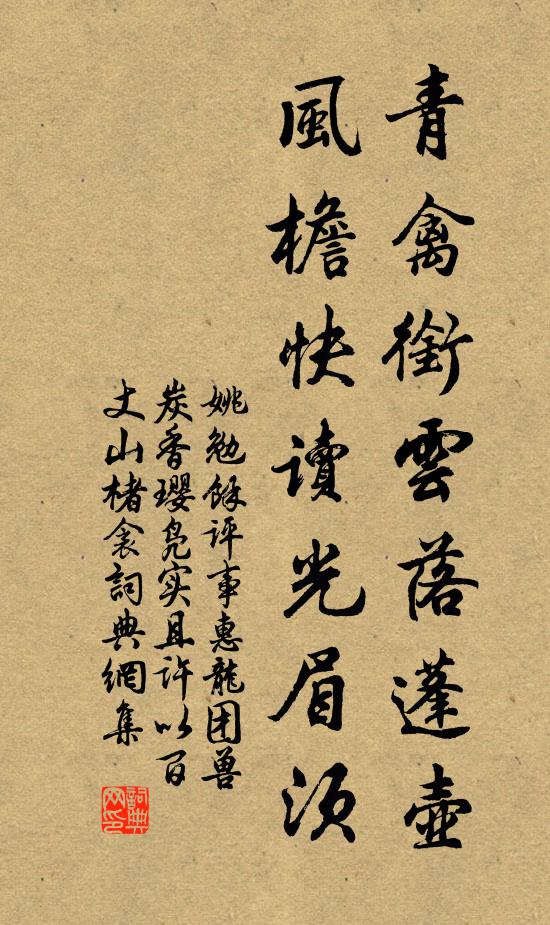 青禽銜雲落蓬壺
風檐快讀光眉須
姚勉餘评事惠龍团兽
炭香璎凫实且许以百
丈山楮衾詞典網集
詞典
网印